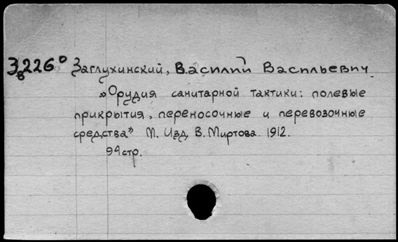 З₈226⁰ Заглухинский, Василий Васильевич.
„Орудия санитарной тактики: полевые
прикрытия, переносочные и перевозочные
средства” М. Изд. В. Миртова. 1912.
94 стр.